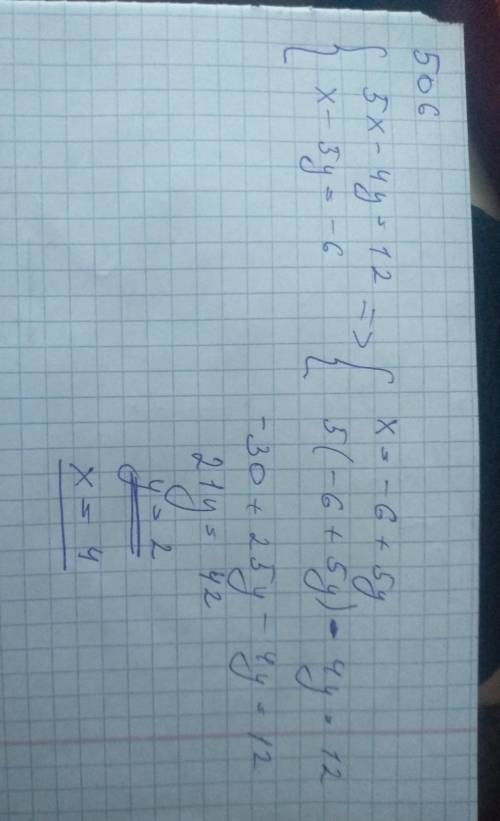 506
{ 5x - 4y = 12 => { x = -6 + 5y
x - 5y = -6 5(-6 + 5y) - 4y = 12
-30 + 25y - 4y = 12
21y = 42
y = 2
x = 4